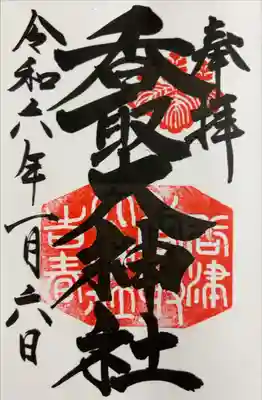 奉拝
香取大神社
令和六年一月六日